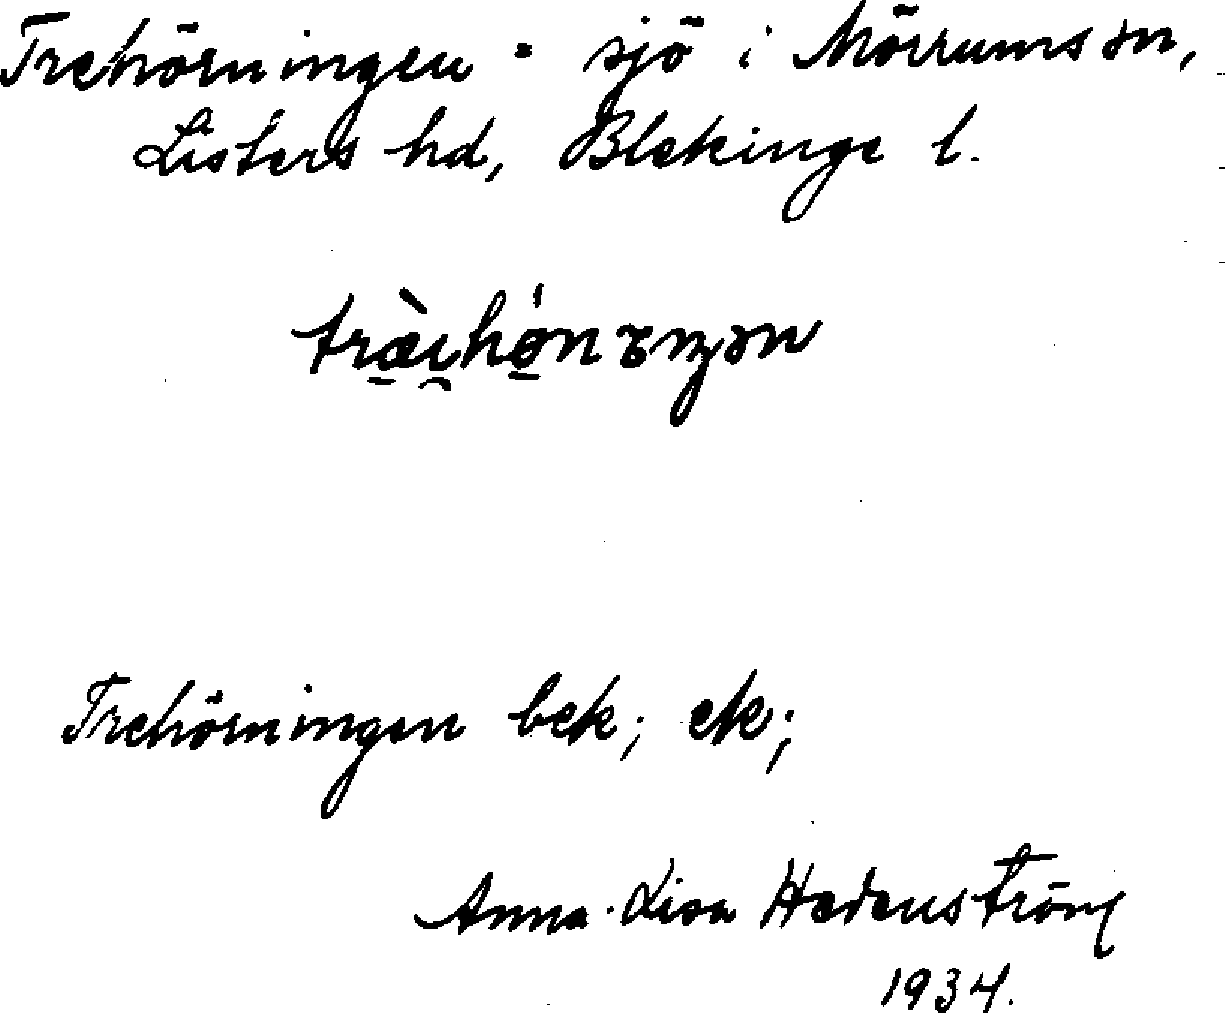 Trehörningen - sjö i Mörrums sn,
Listers hd, Blekinge l.
Trehörningen bek; ek;
Anna-Lisa Hedenström
1934.